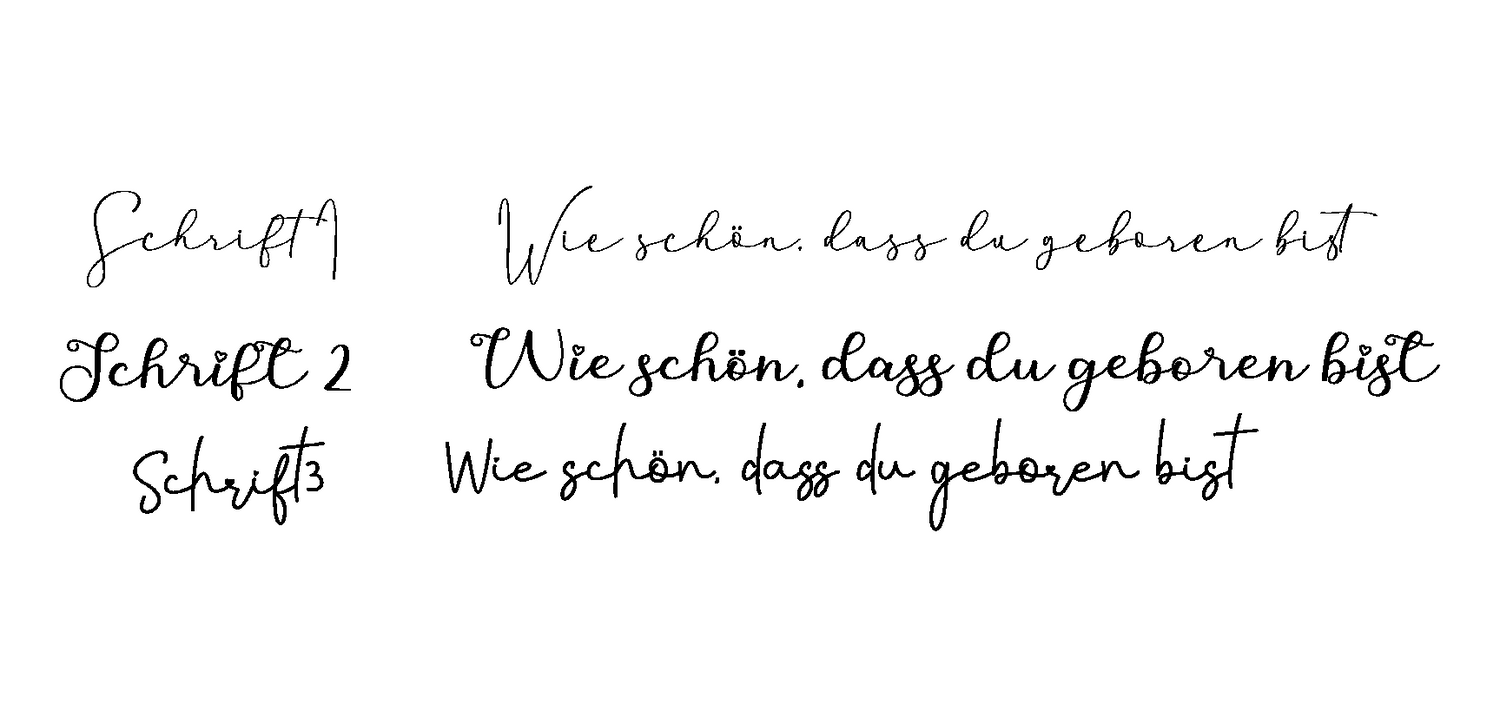 Schrift 1 Wie schön, dass du geboren bist
Schrift 2 Wie schön, dass du geboren bist
Schrift 3 Wie schön, dass du geboren bist